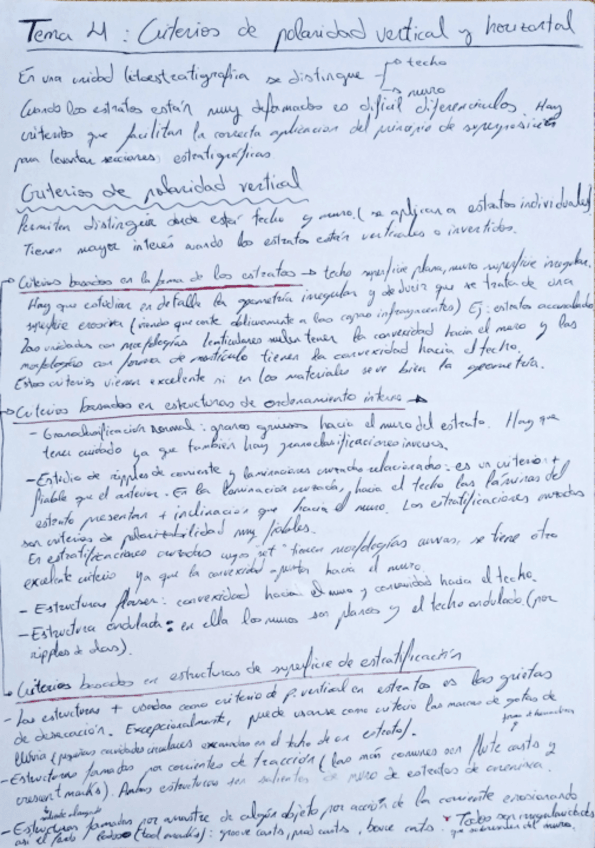 Tema 4 : Criterios de polaridad vertical y horizontal
En una unidad litoestratigráfica se distingue techo
muro
Cuando los estratos están muy deformados es difícil diferenciarlos. Hay
criterios que facilitan la correcta aplicación del principio de superposición
para levantar secciones estratigráficas
Criterios de polaridad vertical
Permiten distinguir donde está techo y muro. (se aplican a estratos individuales)
Tienen mayor interés cuando los estratos están verticales o invertidos.
Criterios basados en la forma de los estratos → techo superficie plana, muro superficie irregular.
Hay que estudiar en detalle la geometría irregular y deducir que se trata de una
superficie erosiva (viendo que corte oblicuamente a las capas infrayacentes) Ej: estratos acanalados
Las unidades con morfologías lenticulares suelen tener la convexidad hacia el muro y las
morfologías con forma de montículo tienen la convexidad hacia el techo.
Estos criterios vienen excelente si en los materiales se ve bien la geometría.
Criterios basados en estructuras de ordenamiento interno →
- Granoclasificación normal : granos gruesos hacia el muro del estrato. Hay que
tener cuidado ya que también hay granoclasificaciones inversas.
- Estudio de ripples de corriente y laminaciones cruzadas relacionadas: es un criterio +
fiable que el anterior. En la laminación cruzada, hacia el techo las láminas del
estrato presentan + inclinación que hacia el muro. Las estratificaciones cruzadas
son criterios de polaridad muy fiables.
En estratificaciones cruzadas cuyos "set" tienen morfologías curvas, se tiene otro
excelente criterio ya que la convexidad apunta hacia el muro.
- Estructuras flaser: convexidad hacia el muro y concavidad hacia el techo.
- Estructura ondulada: en ella los muros son planos y el techo ondulado (por
ripples de olas).
Criterios basados en estructuras de superficie de estratificación
- Las estructuras + usadas como criterio de p. vertical en estratos es las grietas
de desecación. Excepcionalmente, puede usarse como criterio las marcas de gotas de
lluvia (pequeñas cavidades circulares excavadas en el techo de un estrato).
- Estructuras formadas por corrientes de tracción (las más comunes son flute casts y
crescent marks). Ambas estructuras son salientes de muro de estratos de arenisca.
- Estructuras formadas por arrastre de algún objeto por acción de la corriente erosionando
así el fondo (tool marks): groove casts, prod casts, bounce casts. Todos son irregularidades
que sobresalen del muro.